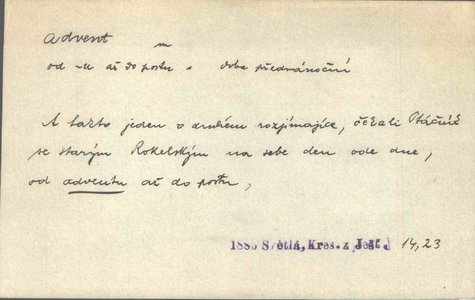 advent
m
od -u až do postu = doba předvánoční
A takto jeden o druhém rozjímajíce, očekali Ptáčník
se starým Rokelským na sebe den ode dne,
od adventu až do postu,
1880 Světlá, Kres. z Ješť. 14,23